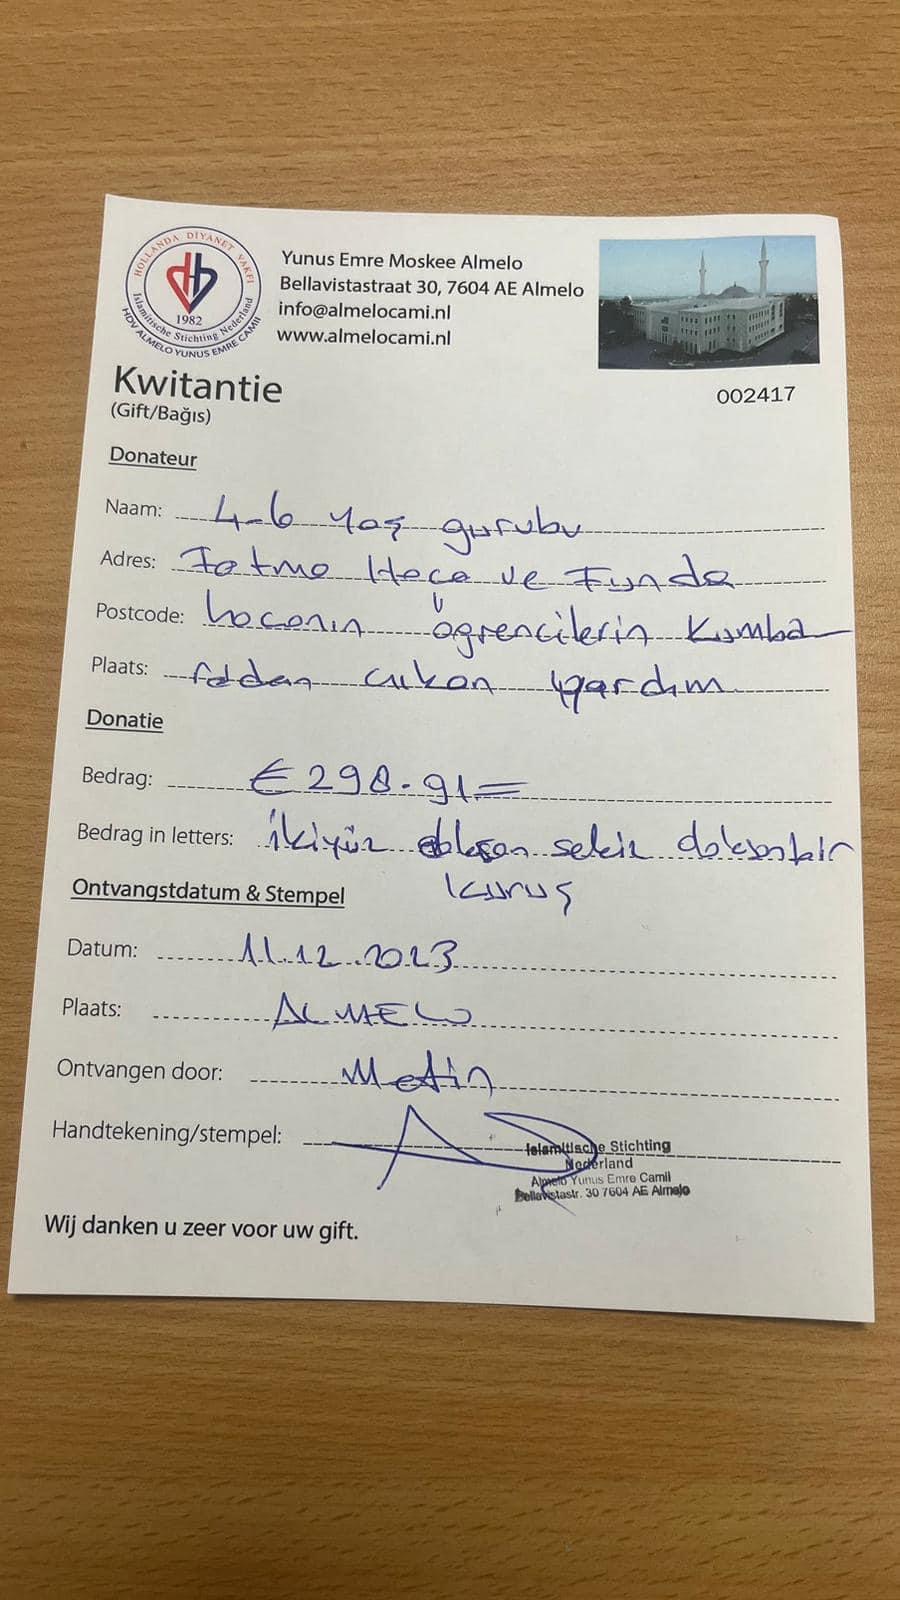 HOLLANDA DİYANET VAKFI
1982
Islamitische Stichting Nederland
HDV ALMELO YUNUS EMRE CAMII
Yunus Emre Moskee Almelo
Bellavistastraat 30, 7604 AE Almelo
info@almelocami.nl
www.almelocami.nl
Kwitantie
(Gift/Bağıs)
002417
Donateur
Naam: 4-6 yaş gurubu
Adres: Fatma Hoca ve Funda
Postcode: hocanın öğrencilerin Kumba
Plaats: radan cıkan yardım
Donatie
Bedrag: € 298.91=
Bedrag in letters: ikiyüz doksan sekiz doksanbir
kuruş
Ontvangstdatum & Stempel
Datum: 11.12.2023
Plaats: ALMELO
Ontvangen door: Metin
Handtekening/stempel:
Islamitische Stichting
Nederland
Almelo Yunus Emre Camii
Bellavistastr. 30 7604 AE Almelo
Wij danken u zeer voor uw gift.